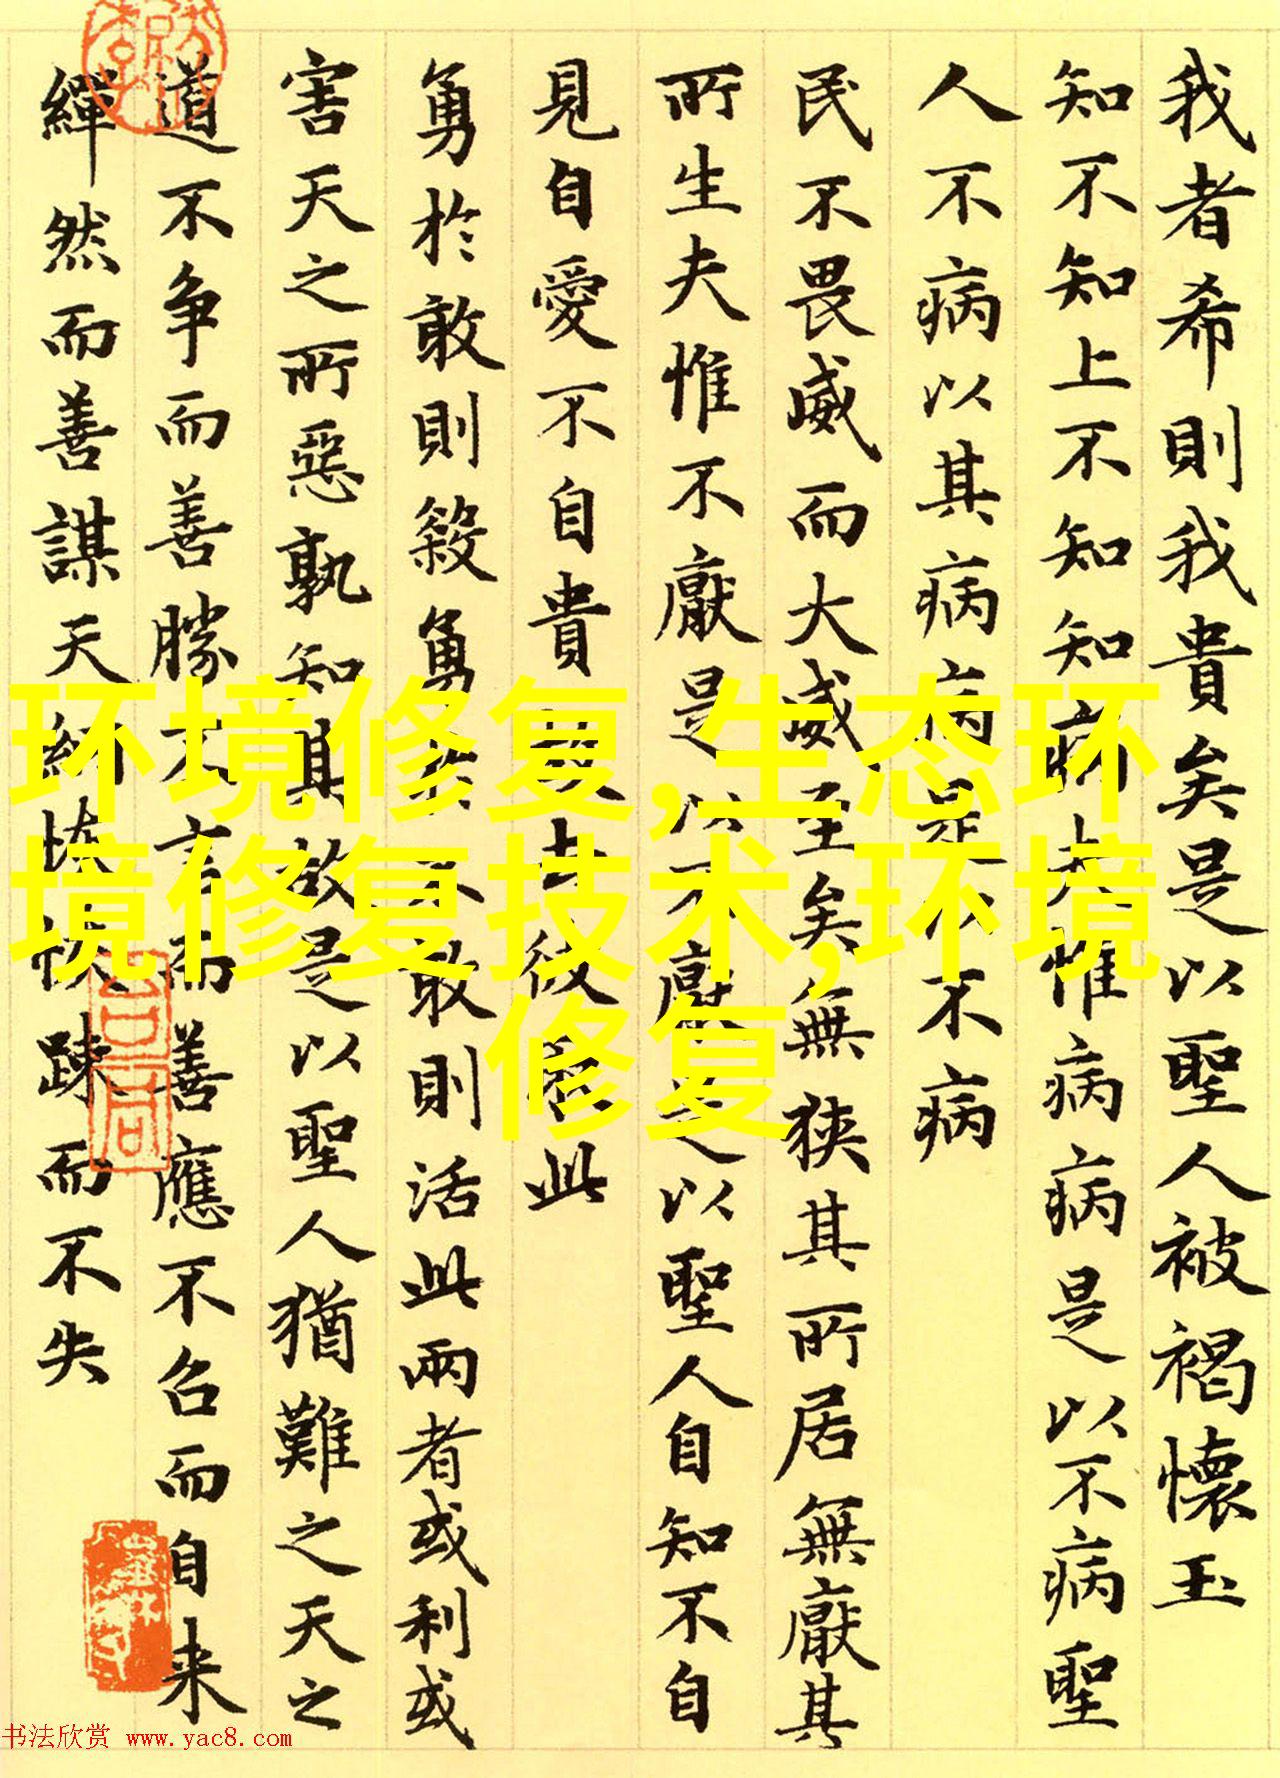 我者希則我貴矣是以聖人被褐懷玉
知不知上不知知病夫惟病病是以不病聖
人不病以其病病是以不病
民不畏威而大威至矣無狹其所居無厭其
所生夫惟不厭是以不厭是以聖人自知不自
見自愛不自貴故去彼取此
勇於敢則殺勇於不敢則活此兩者或利或
害天之所惡孰知其故是以聖人猶難之天之
道不争而善勝不言而善應不召而自来
繟然而善謀天網恢恢踈而不失
环境修复,生态环
境修复技术,环境
修复
书法欣赏 www.yac8.com